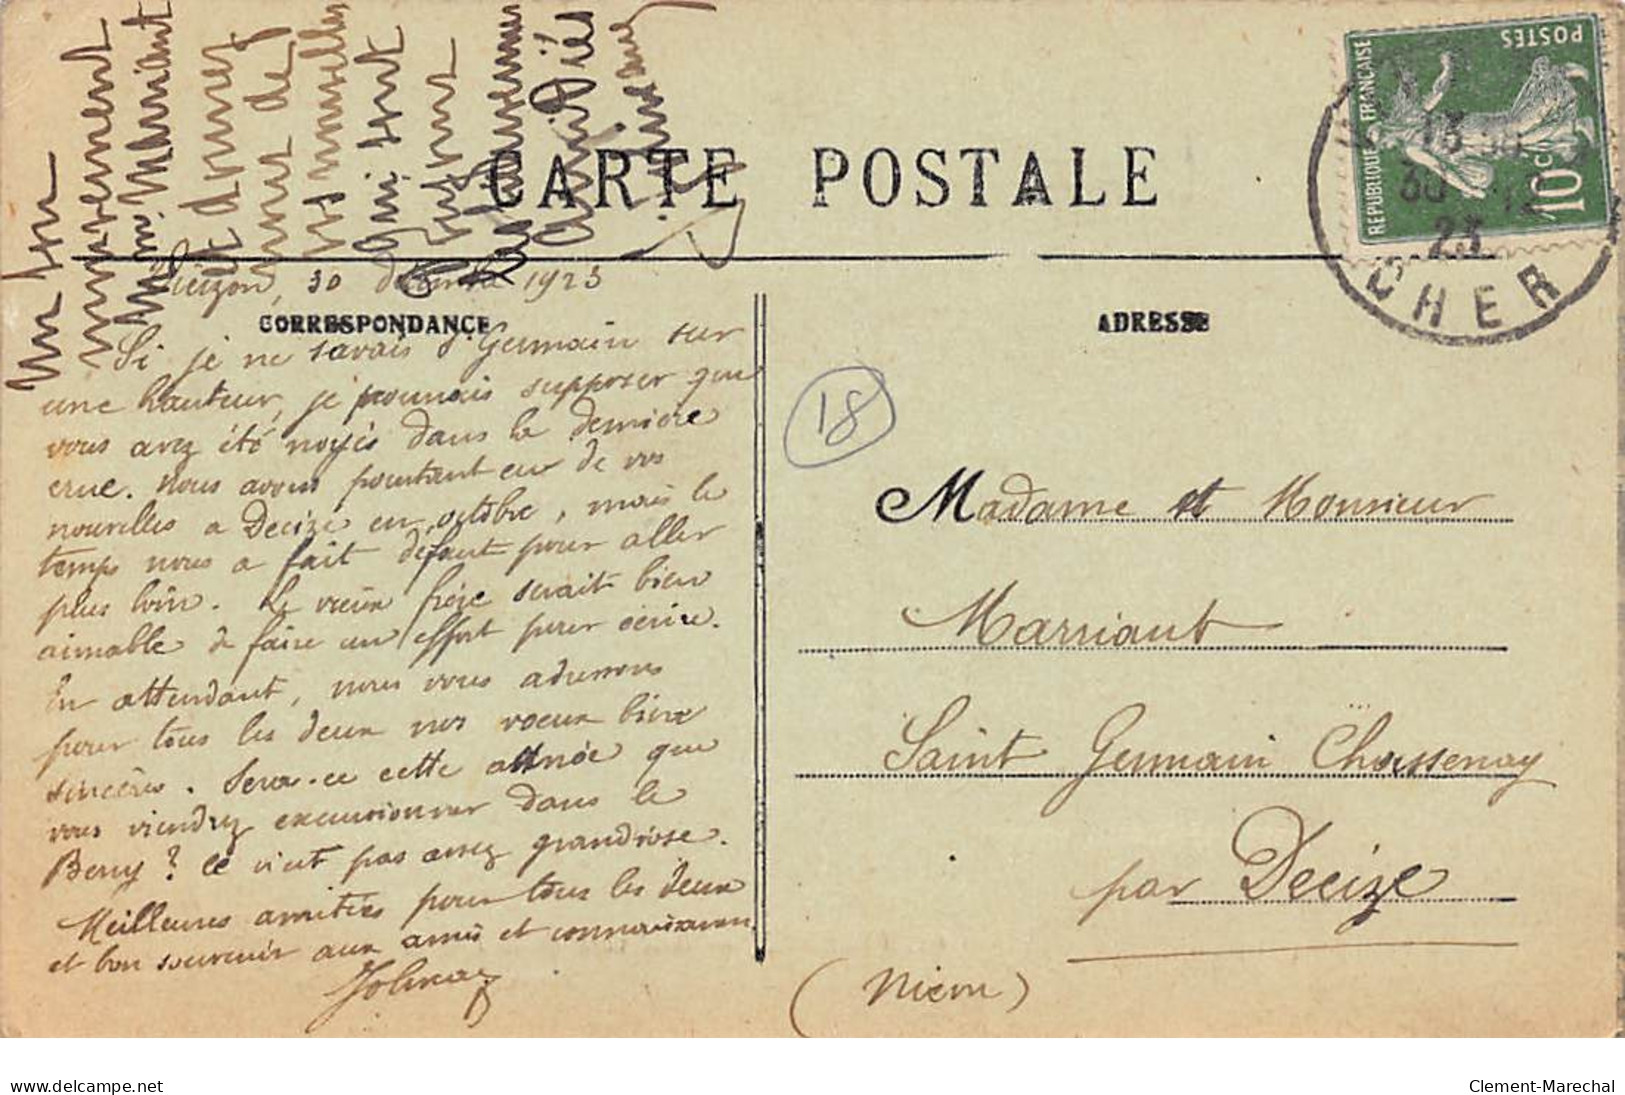 Un bon
mouvement
Mr. Marriaut
et donnez
nous de
vos nouvelles
qui sont
CARTE POSTALE
REPUBLIQUE FRANÇAISE
POSTES
10c
13
30
23
CHER
Vierzon, 30 décembre 1923
CORRESPONDANCE
ADRESSE
Si je ne savais St Germain sur
une hauteur, je pourrais supposer que
vous avez été noyés dans la dernière
crue. Nous avons pourtant eu de vos
nouvelles à Decize en octobre, mais le
temps nous a fait défaut pour aller
plus loin. Le vieux frère serait bien
aimable de faire un effort pour écrire.
En attendant, nous vous adressons
pour tous les deux nos voeux bien
sincères. Sera-ce cette année que
vous viendrez excursionner dans le
Berry? Ce n'est pas assez grandiose.
Meilleures amitiés pour tous les deux
et bon souvenir aux amis et connaissances.
18
Madame et Monsieur
Marriaut
Saint Germain Chassenay
par Decize
(Nièvre)
www.delcampe.net
Clement-Marechal